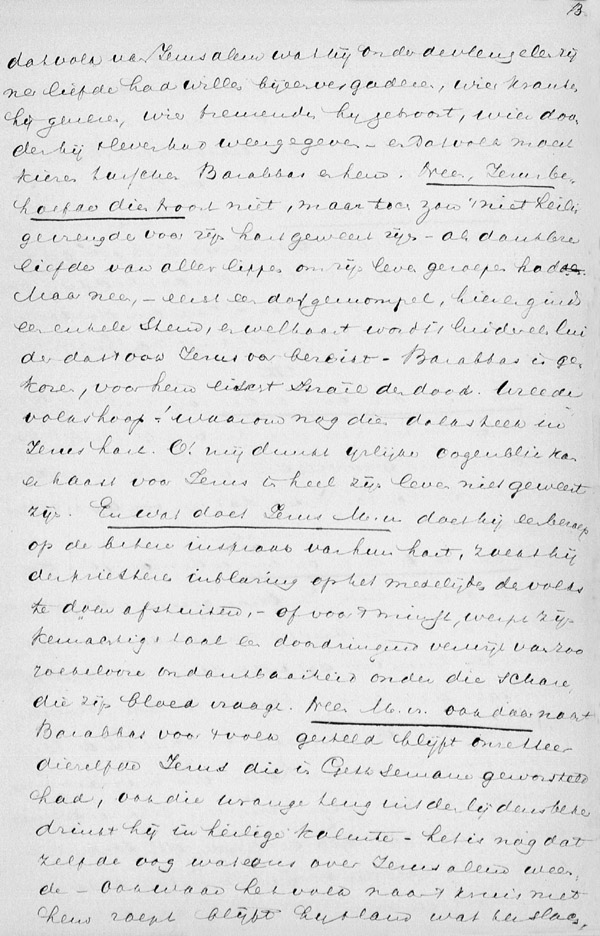 13.
dat volk van Jerusalem wat hij onder de vleugelen zij
ner liefde had willen bijeen vergaderen, wier kranken
hij genezen, wier treurenden hij getroost, wier doo
den hij 't leven had weergegeven - en dat volk moest
kiezen tusschen Barabbas en hem. Neen, Jezus be-
hoefde dien troost niet, maar toch zou 't niet heili
ge vreugde voor zijn hart geweest zijn - als dankbre
liefde van aller lippen om zijn leven geroepen had
Maar neen, - eerst een dof gemompel, hier en ginds
een enkele stem, en weldra wordt 't luider en lui
der dat voor Jezus - Barabbas is ge-
kozen, voor hem eischt Israël den dood. Wreede
volkshoop! waarom nog dien dolksteek in
Jezus hart. O! mij dunkt ijslijker oogenblik kan
er haast voor Jezus in heel zijn leven niet geweest
zijn. En wat doet Jezus M.v. doet hij een beroep
op de betere inspraak van hun hart, zoekt hij
der priesteren inblazing op het medelijden des volks
te doen afstuiten, - of voor 't minst, werpt zijn
taal een doordringend verwijt van zoo
ondankbaarheid onder die schare,
die zijn bloed vraagt. Neen M.v. ook daar naast
Barabbas voor 't volk gesteld blijft onze Heer
dezelfde Jezus die in Gethsemane geworsteld
had, ook die wrange teug uit den lijdensbeker
drinkt hij in heilige kalmte - het is nog dat
zelfde oog wat eens over Jerusalem ween
de - ook waar het volk naar 't kruis met
hem roept blijft hij 't land wat hem sloeg,